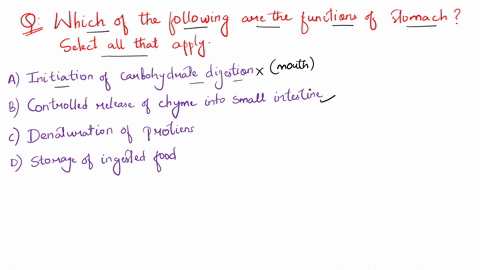 Q: Which of the following are the functions of stomach?
Select all that apply.
A) Initiation of carbohydrate digestion x (mouth)
B) Controlled release of chyme into small intestine ✓
C) Denaturation of protiens
D) Storage of ingested food